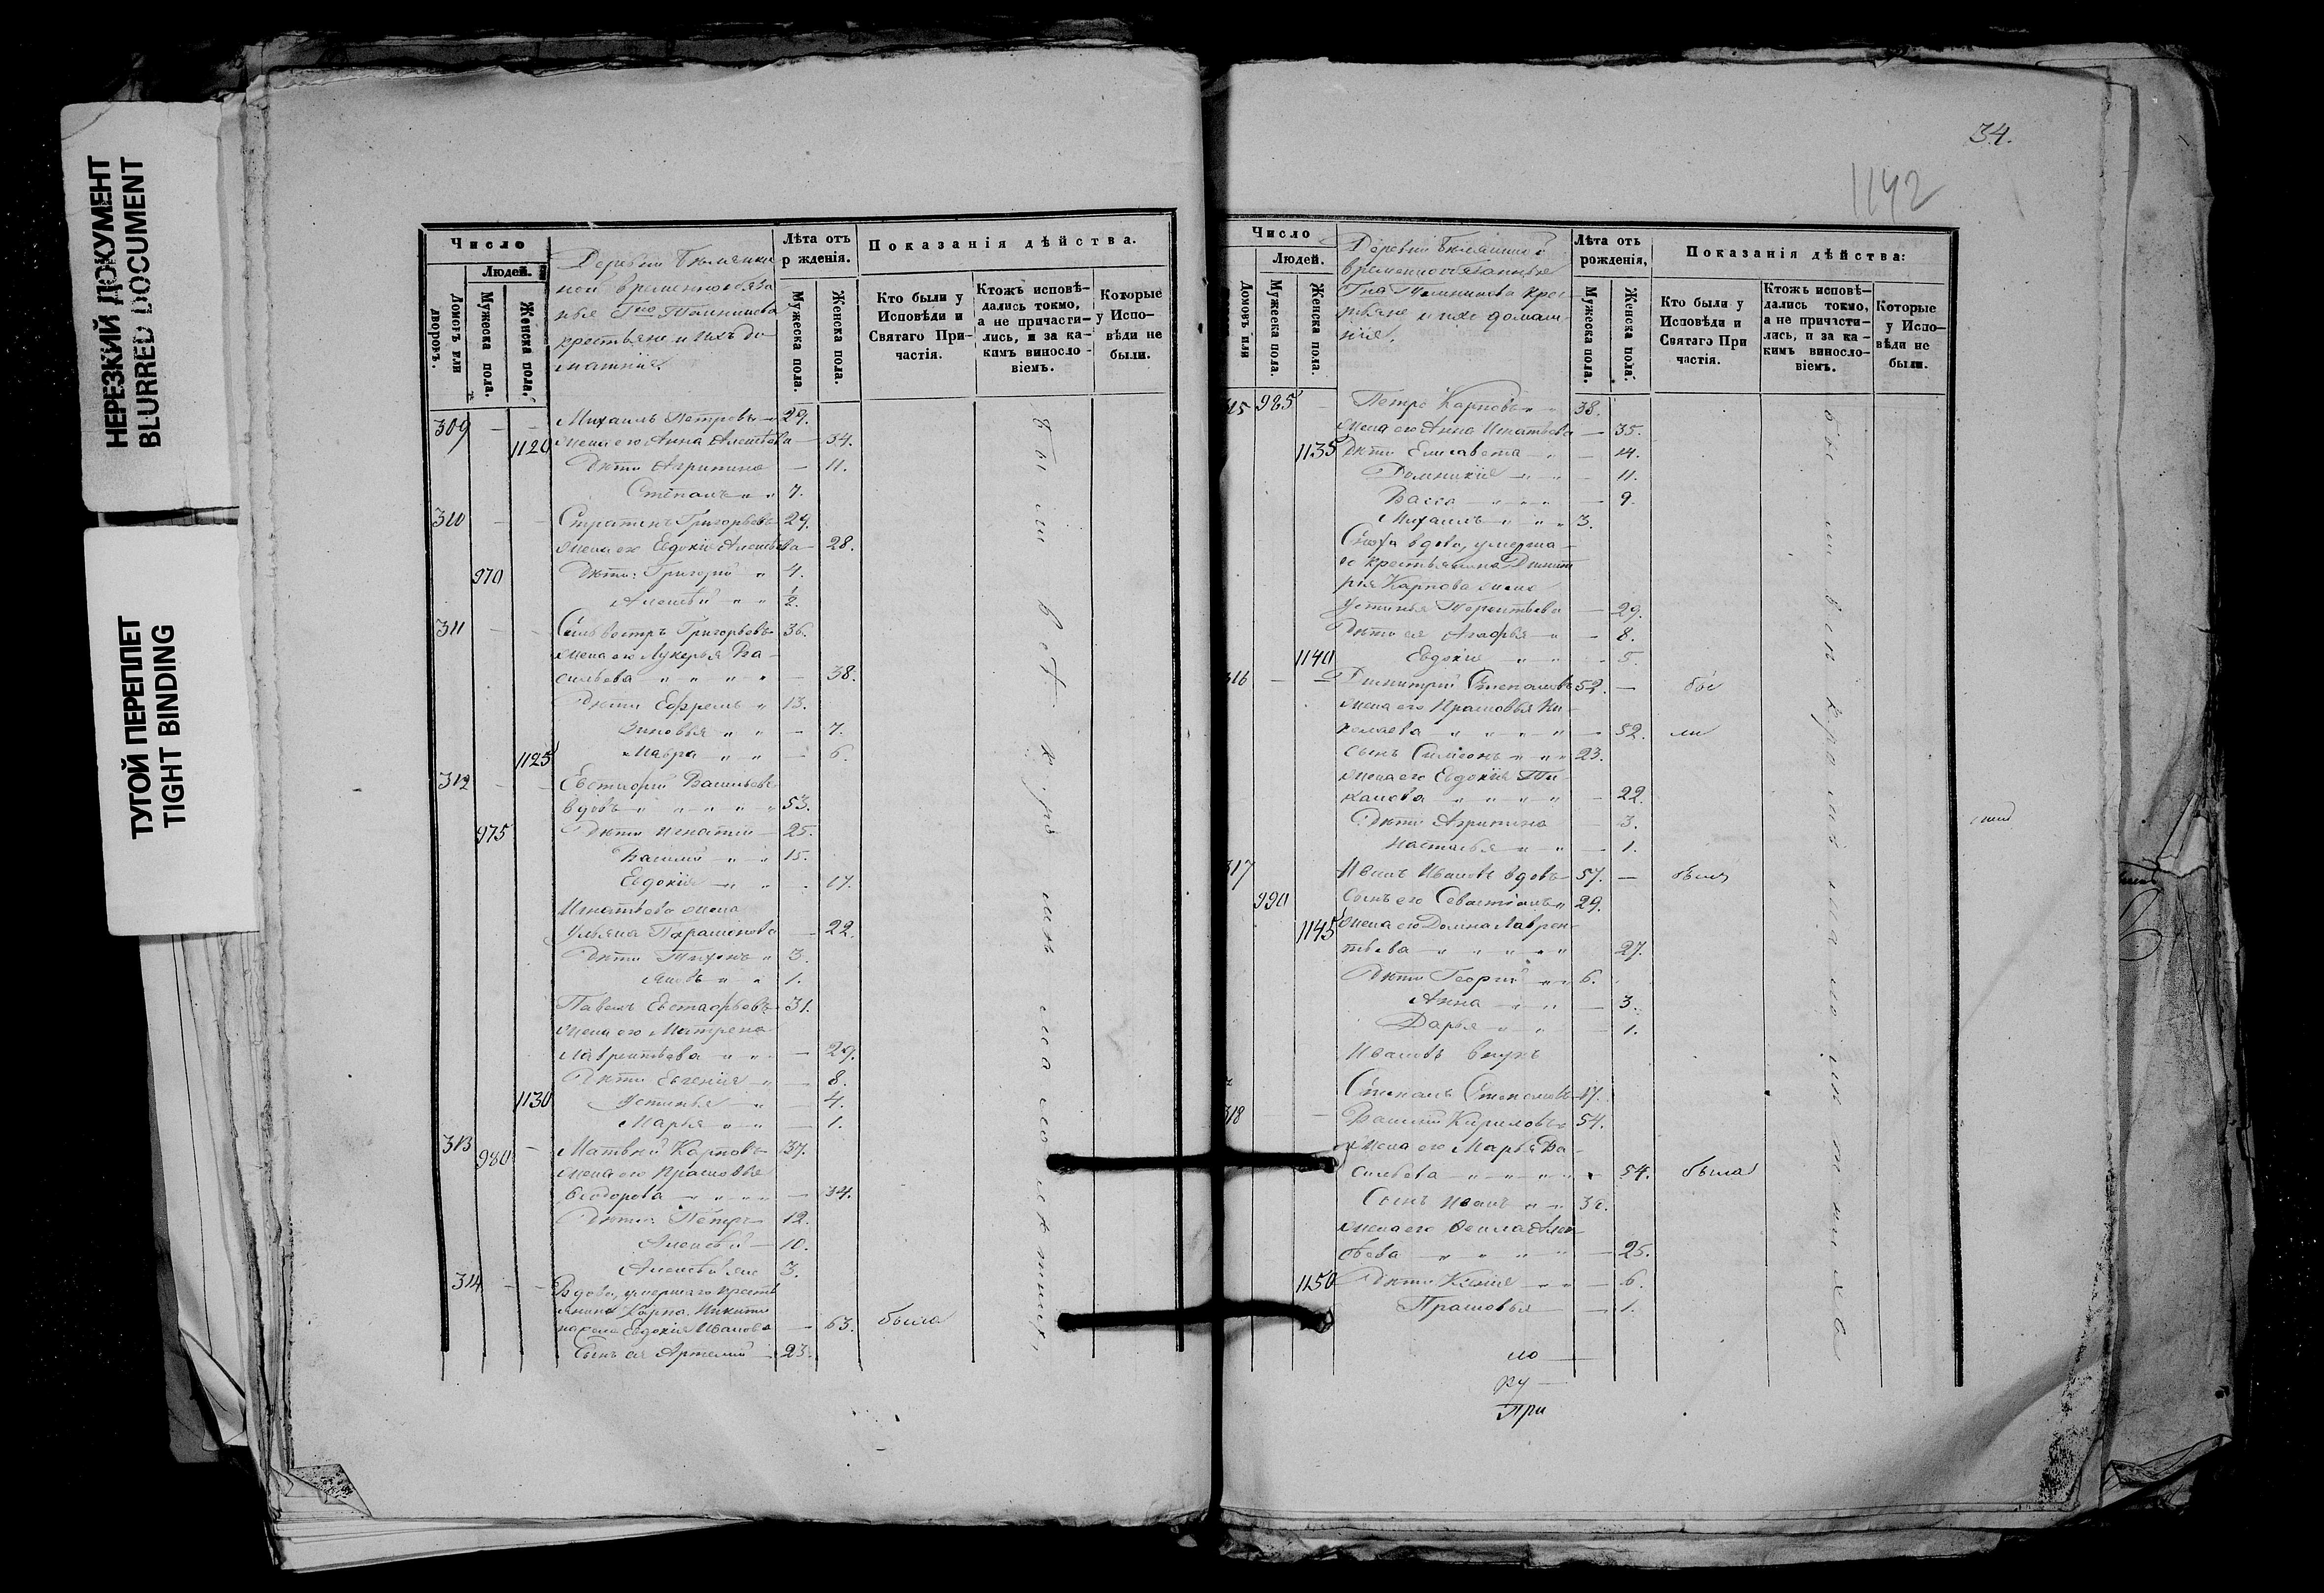 НЕРЕЗКИЙ ДОКУМЕНТ
BLURRED DOCUMENT
ТУГОЙ ПЕРЕПЛЕТ
TIGHT BINDING
Число
Людей.
Домовъ или дворовъ.
Мужеска пола.
Женска пола.
Деревни
ной временнообяза
крестьяне и ихъ до
машніе.
Лѣта отъ рожденія.
Мужеска пола.
Женска пола.
Показанія дѣйства.
Кто были у Исповѣди и Святаго Причастія.
Ктожъ исповѣ-дались токмо, а не причасти-лись, и за ка-кимъ винословіемъ.
Которые у Испо-вѣди не были.
309 Михаилъ Петровъ 29.
1120 жена его Анна Алексѣева 34.
Дѣти Агрипина 11.
Степанъ 7.
310 Григорьевъ 29.
жена его Евдокія Алексѣева 28.
970 Дѣти: Григорій 4.
Алексѣй ½
311 Сильвестръ Григорьевъ 36.
жена его Лукерья Ва-
сильева 38.
Дѣти Ефремъ 13.
Зиновья 7.
1125 Мавра 6.
312 Евстафій Васильевъ
вдовъ 53.
975 Дѣти Игнатій 25.
Василій 15.
Евдокія 17.
Игнатьева жена
Ульяна Парамонова 22.
Дѣти Тихонъ 3.
Яковъ 1.
Павелъ Евстафьевъ 31.
жена его Матрена
Лаврентьева 29.
Дѣти Евгенія 8.
1130 Устинья 4.
Марья 1.
313 980 Матвѣй Карповъ 37.
жена его Прасковья
Ѳеодорова 34.
Дѣти: Петръ 12.
Алексѣй 10.
Алексѣй 3.
314 Вдова, умершаго кресть
янина Карпа Никити
на жена Евдокія Иванова 63. была
Сынъ ея Артемій 23.
34.
1142
Число
Людей.
Домовъ или
Мужеска пола.
Женска пола.
Деревни
временнообязанные
крес-
тьяне и ихъ домаш-
ніе.
Лѣта отъ рожденія,
Мужеска пола.
Женска пола.
Показанія дѣйства:
Кто были у Исповѣди и Святаго При частія.
Ктожъ исповѣ-дались токмо, а не причасти-лись, и за ка-кимъ виносло-віемъ.
Которые у Испо-вѣди не были.
315 985 Петръ Карповъ 38.
жена его Анна Игнатьева 35.
1135 Дѣти Елисавета 14.
Домникія 11.
Васса 9.
Михаилъ 3.
Сноха вдова, умерша-
го крестьянина Димит
рія Карпова жена
Устинья Терентьева 29.
Дѣти ея Агафья 8.
1140 Евдокія 5.
316 Димитрій Степановъ 52. бы
жена его Прасковья Ни-
колаева 52. ли
сынъ Симеонъ 23.
жена его Евдокія Ти-
ханова 22.
Дѣти Агрипина 3.
Настасья 1.
317 Иванъ Ивановъ вдовъ 57. былъ
990 Сынъ его Севастіанъ 29.
1145 жена его Домна Лаврен-
тьева 27.
Дѣти Георгій 6.
Анна 3.
Дарья 1.
Ивановъ внукъ
Степанъ Степановъ 17.
318 Василій Кириловъ 54.
жена его Марья Ва-
сильева 54. была
Сынъ Иванъ
жена его Ѳекла Алек-
сѣева 25.
1150 Дѣти Ксенія 6.
Прасковья 1.
но
ру
При